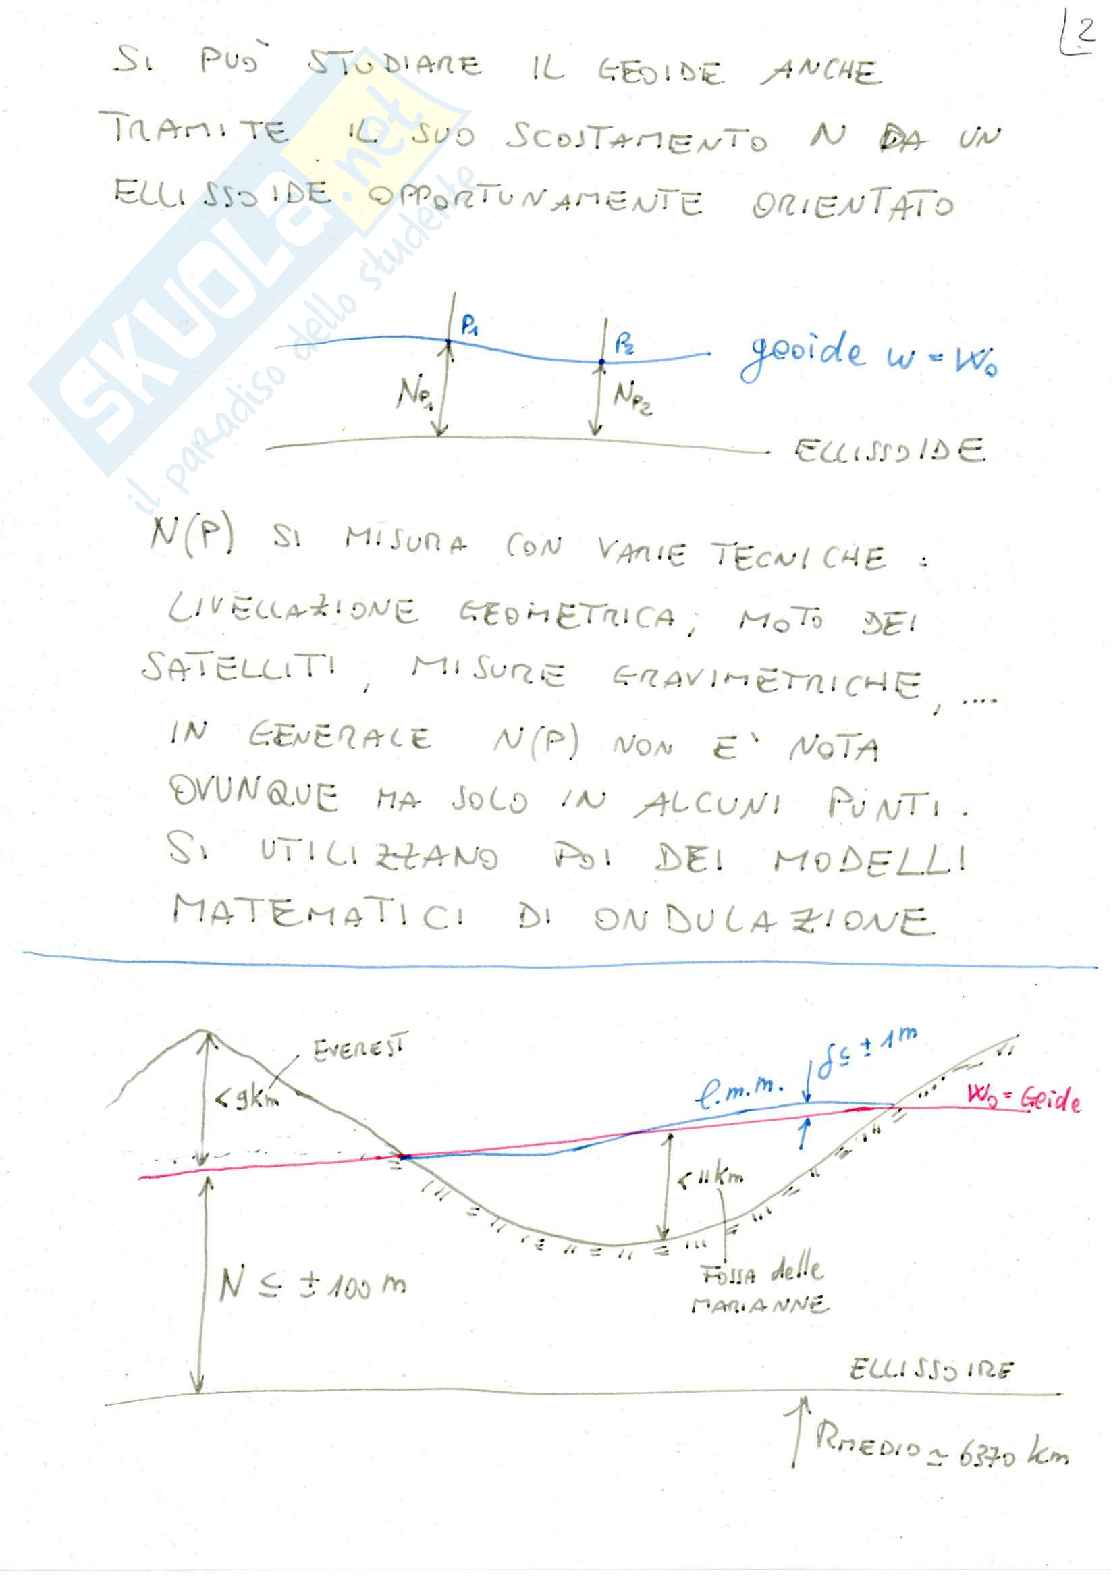 2
SI PUÒ STUDIARE IL GEOIDE ANCHE
TRAMITE IL SUO SCOSTAMENTO N DA UN
ELLISSOIDE OPPORTUNAMENTE ORIENTATO
SKUOLA.net
il paradiso dello studente
P1
P2
geoide W = W0
NP1
NP2
ELLISSOIDE
N(P) SI MISURA CON VARIE TECNICHE :
LIVELLAZIONE GEOMETRICA, MOTO DEI
SATELLITI, MISURE GRAVIMETRICHE, ....
IN GENERALE N(P) NON E' NOTA
OVUNQUE MA SOLO IN ALCUNI PUNTI.
SI UTILIZZANO POI DEI MODELLI
MATEMATICI DI ONDULAZIONE
EVEREST
< 9km
l.m.m.
δ ≤ ± 1m
W0 = Geide
< 11km
FOSSA delle
MARIANNE
N ≤ ± 100 m
ELLISSOIRE
RMEDIO ≃ 6370 km